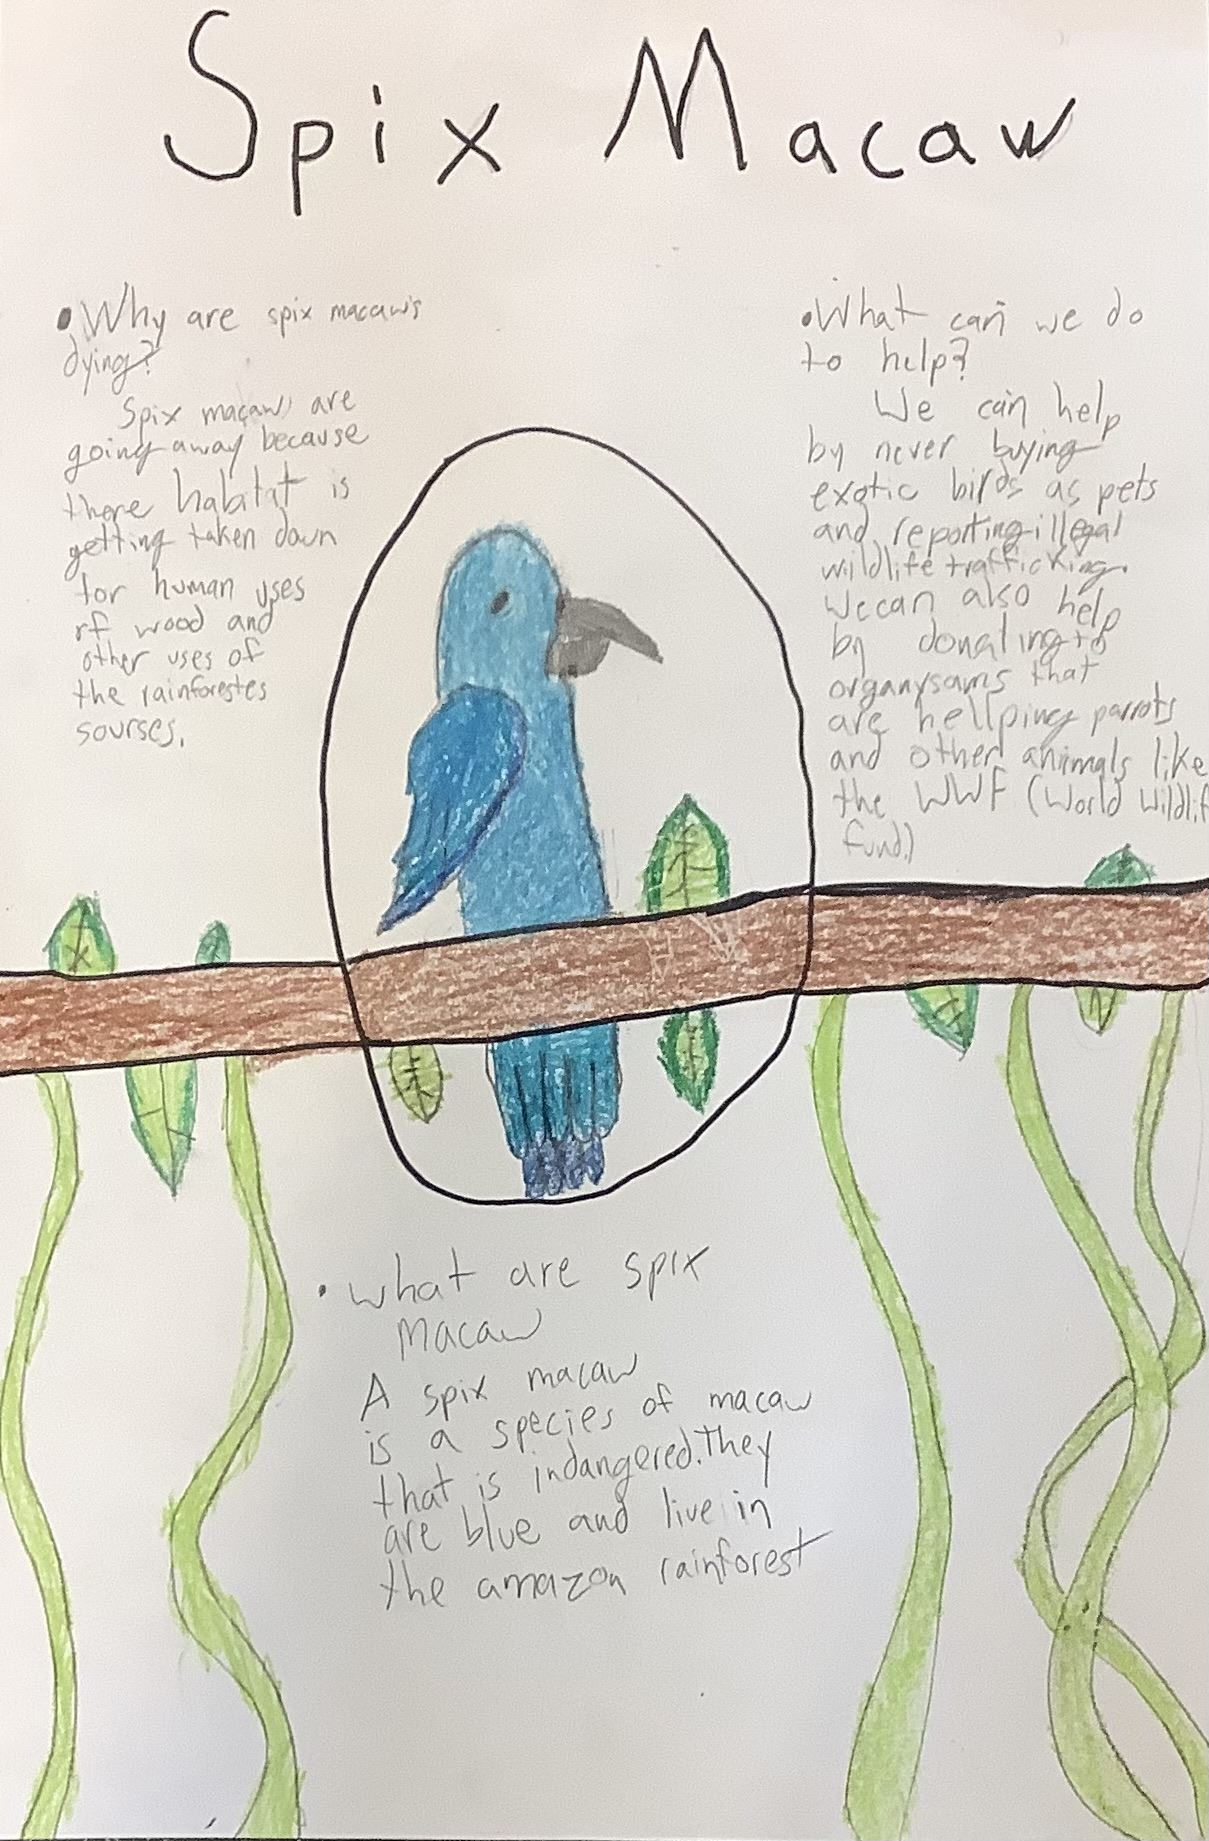 Spix Macaw
•Why are spix macaw's
dying?
Spix macaws are
going away because
there habitat is
getting taken down
for human uses
rf wood and
other uses of
the rainforestes
sourses.
•What can we do
to help?
We can help
by never buying
exotic birds as pets
and reporting illegal
wildlife trafficking.
We can also help
by donating to
organysams that
are hellping parrots
and other animals like
the WWF (World Wildlif
fund.)
•what are spix
macaw
A spix macaw
is a species of macaw
that is indangered. They
are blue and live in
the amazon rainforest